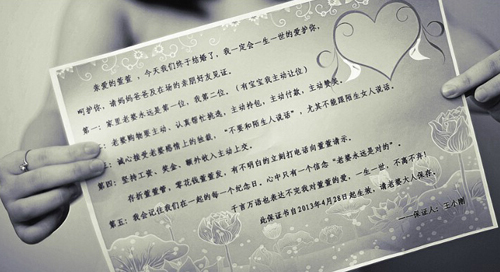 亲爱的董董，今天我们终于结婚了，我一定会一生一世的爱护你、
呵护你，请妈妈爸爸及在场的亲朋好友见证。
第一：家里老婆永远是第一位，我第二位。（有宝宝我主动让位）
老婆购物要主动、认真帮忙挑选，主动拎包，主动付款，主动赞美。
诚心接受老婆感情上的拴裁，“不要和陌生人说话”，尤其不能跟陌生女人说话。
第四：坚持工资、奖金、额外收入主动上交。
存折董董管，零花钱董董发，有不明白的立刻打电话向董董请示。
第五：我会记住我们在一起的每个纪念日，心中只有一个信念“老婆永远是对的”。
千言万语也表达不完我对董董的爱，一生一世，不离不弃！
此保证书自2013年4月28日起生效，请老婆大人保存。
——保证人：王小刚